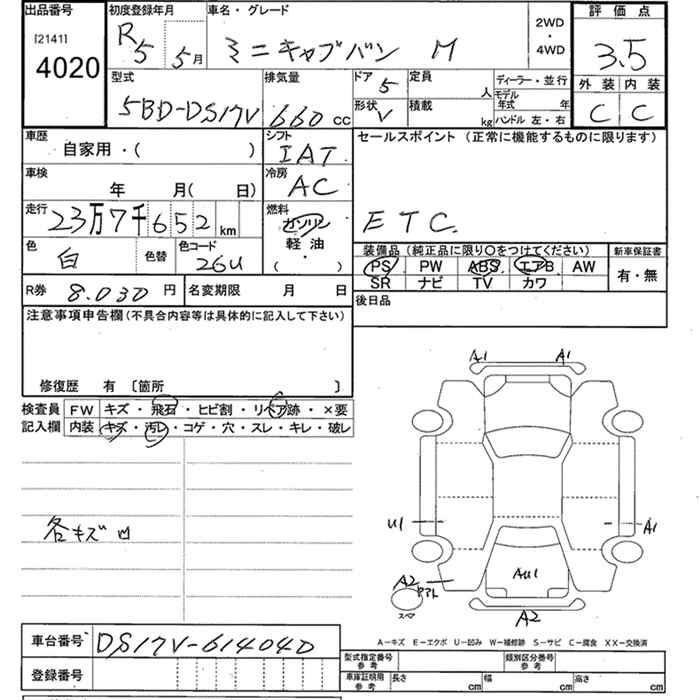 出品番号 初度登録年月 車名・グレード 2WD・4WD 評価点
[2141]
4020 R5 5月 ミニキャブバン M 3.5
型式 排気量 ドア 定員 ディーラー・並行 外装 内装
5BD-DS17V 660cc 5 人 モデル年式 年 C C
形状 積載 kg ハンドル 左・右
V
車歴 シフト セールスポイント (正常に機能するものに限ります)
自家用・( ) IAT
車検 冷房
年 月( 日) AC
走行 燃料
23万7千652km ガソリン ETC.
軽油
( ・ )
色 色替 色コード 装備品 (純正品に限り○をつけてください) 新車保証書
白 26U PS PW ABS エアB AW 有・無
SR ナビ TV カワ
R券 8.030円 名変期限 月 日 後日品
注意事項申告欄(不具合内容等は具体的に記入して下さい)
修復歴 有 〔箇所 〕
検査員 FW キズ・飛石・ヒビ割・リペア跡・×要
記入欄 内装 キズ・汚レ・コゲ・穴・スレ・キレ・破レ
A1 A1
各キズ凹
U1 A1
A2 AU1
スペア A2
A-キズ E-エクボ U-凹み W-補修跡 S-サビ C-腐食 XX-交換済
車台番号 DS17V-614040
型式指定番号 参考 類別区分番号 参考
登録番号
車庫証明用 参考 長さ cm 幅 cm 高さ cm